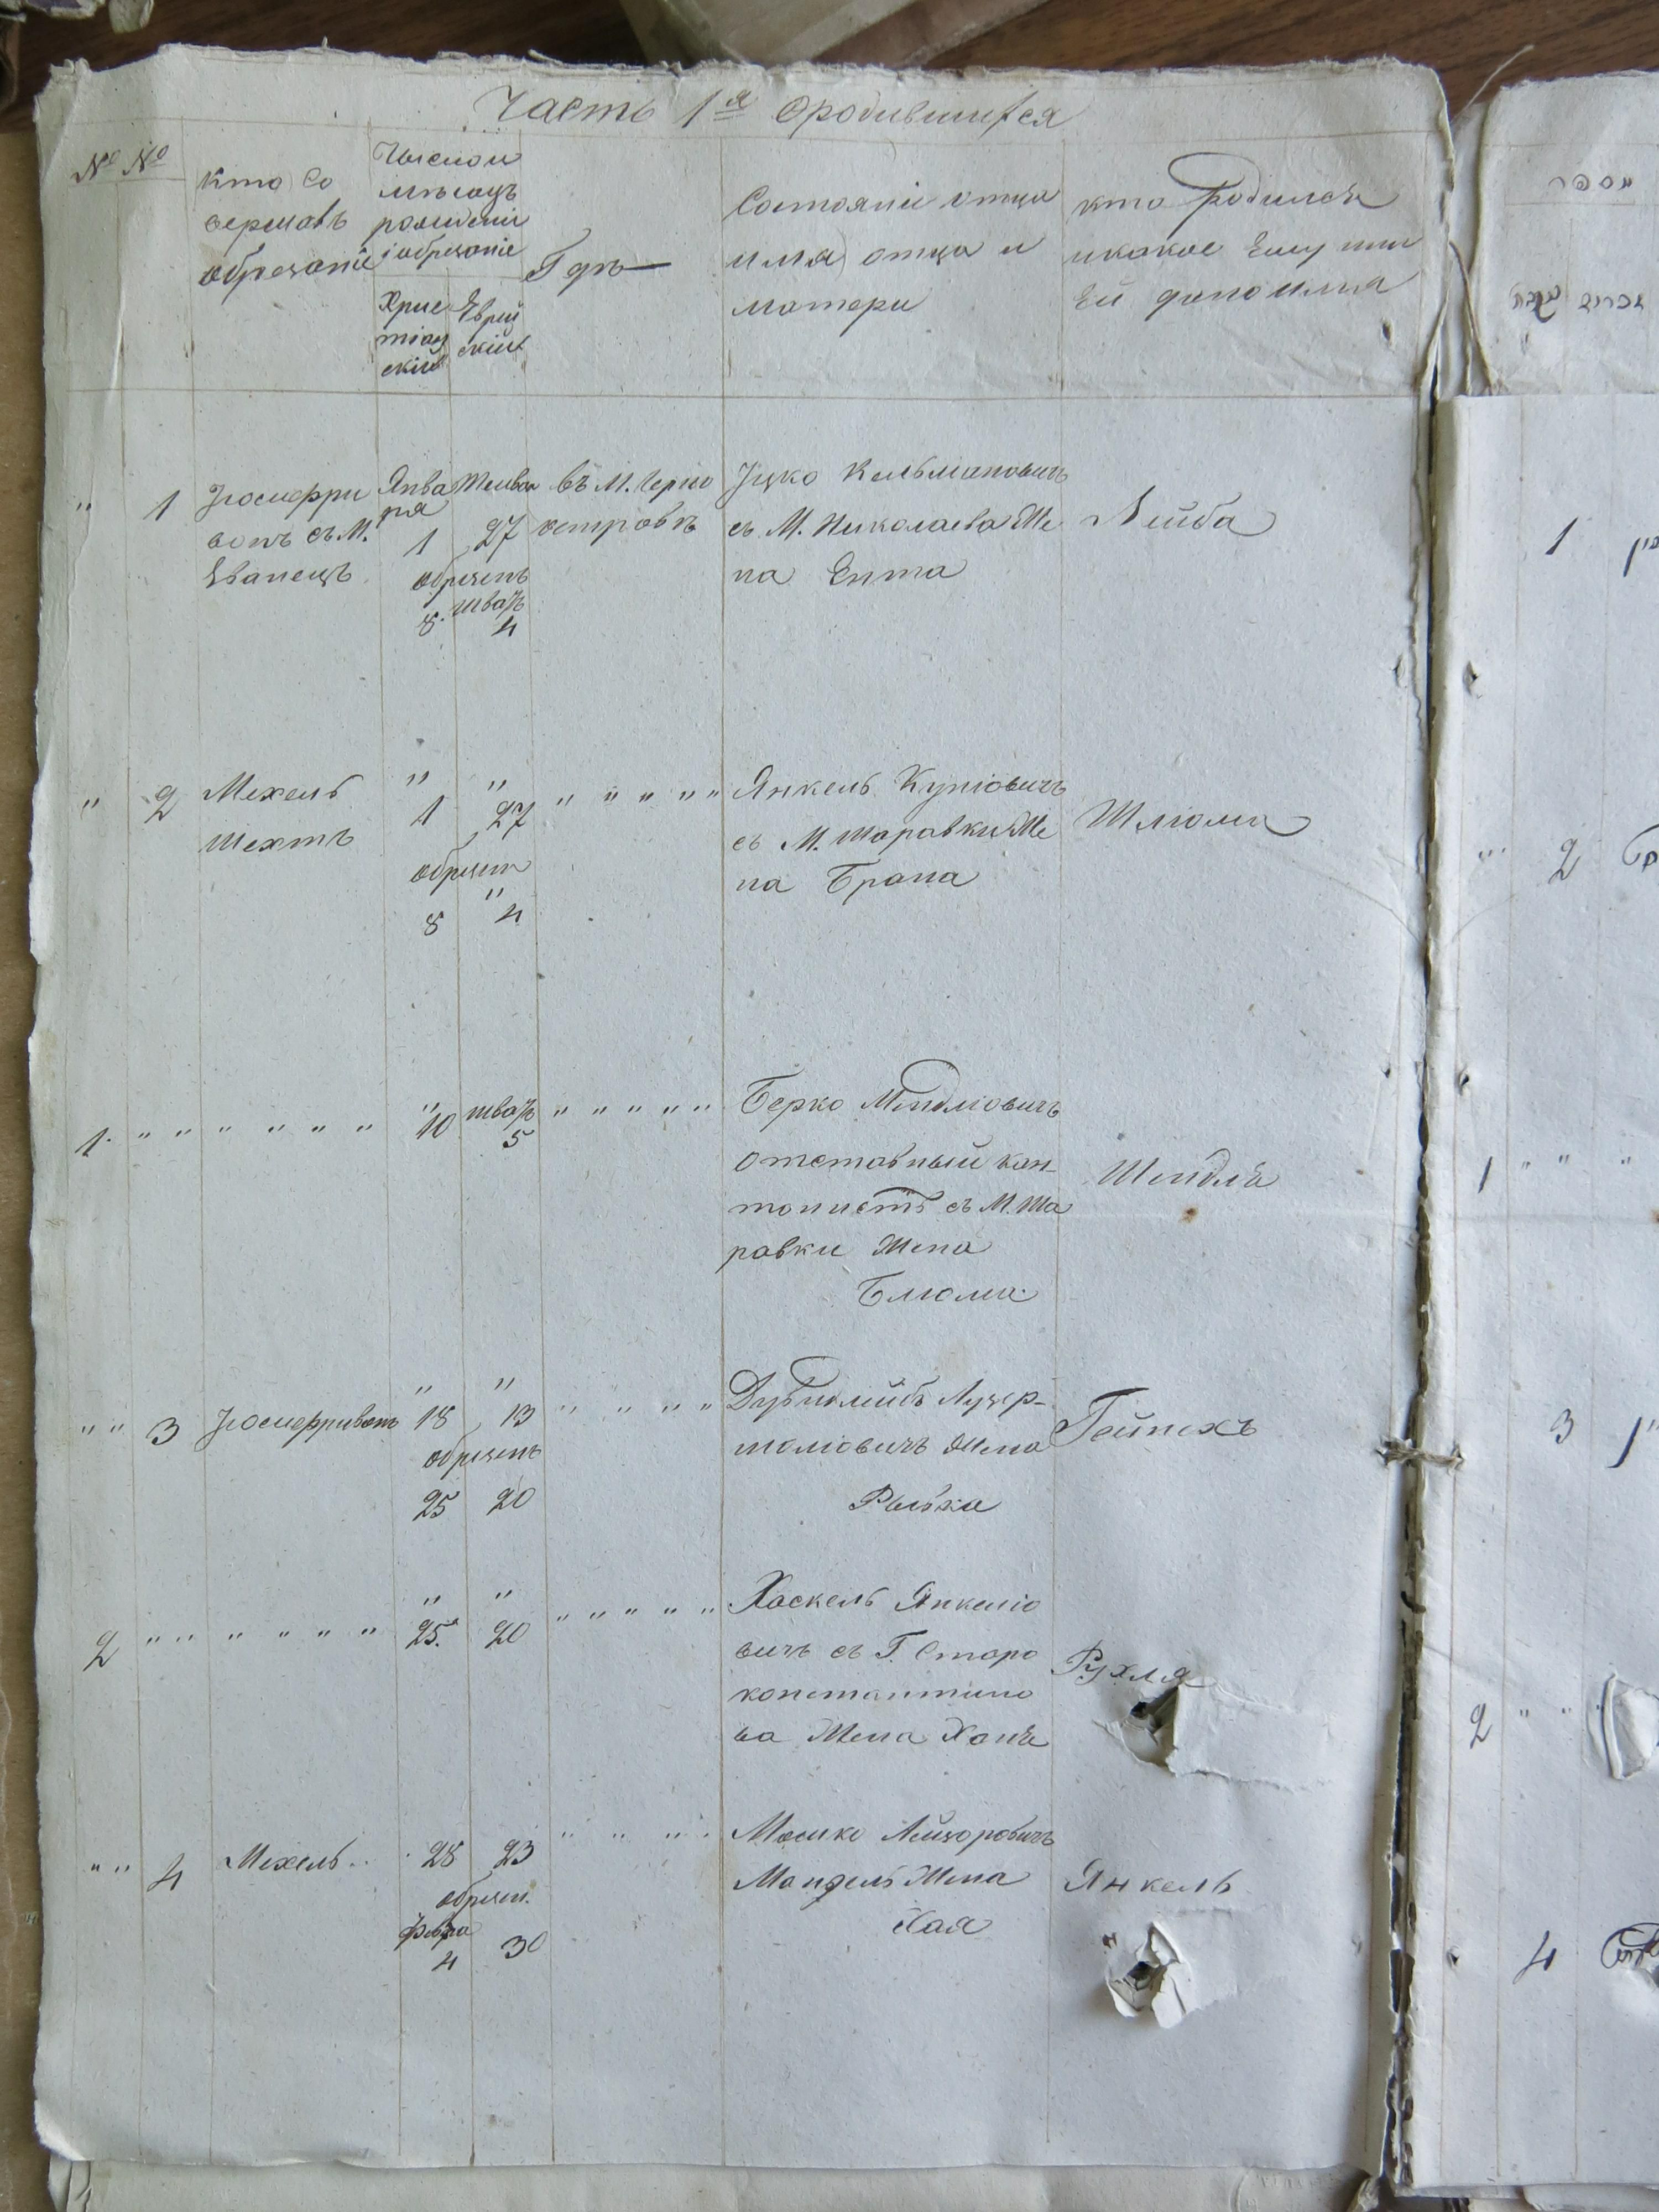 Часть 1я ородившихся
№ №
кто со
вершавъ
обрезаніе
Число и
мѣсяцъ
рождени
і обрезаніе
Хрис
тіан
скій
Еврей
скій
Гдѣ
Состояніи отца
имя отца и
матери
кто родился
и какое Ему или
Ей дано имя
" 1
съ М.
Жванецъ
Янва
ря
1
Тевва
27
обрезанъ
8
шватъ
4
въ М. Черно
островѣ
Іцко Кельмановичъ
съ М. Николаева Же
на Ента
Лейба
" 2
Мехель
Шехтъ
" "
1 27
обрезан
"
8 4
" " " " "
Янкель Куниовичъ
съ М. Шаравки Же
на Брана
Шлиома
1 " " " " " "
"
10
шватъ
5
" " " " "
Берко Мендлиовичъ
отставный кан-
тонистъ съ М. Ша
равки Жена
Блюма
Шендля
" " 3
" "
18 13
обрезанъ
25 20
" " " "
молиовичъ Жена
Гейнехъ
2 " " " " " "
" "
25 20
" " " " "
Хаскель Янкелио
вичъ съ Г. Старо
константино
ва Жена Хана
Рухля
" " 4
Мехель
28 23
обрезан.
февра
4 30
" " " "
Мошко Лейзоровичъ
Мандель Жена
Хая
Янкель
1
2
1 " " "
3
2 " "
4